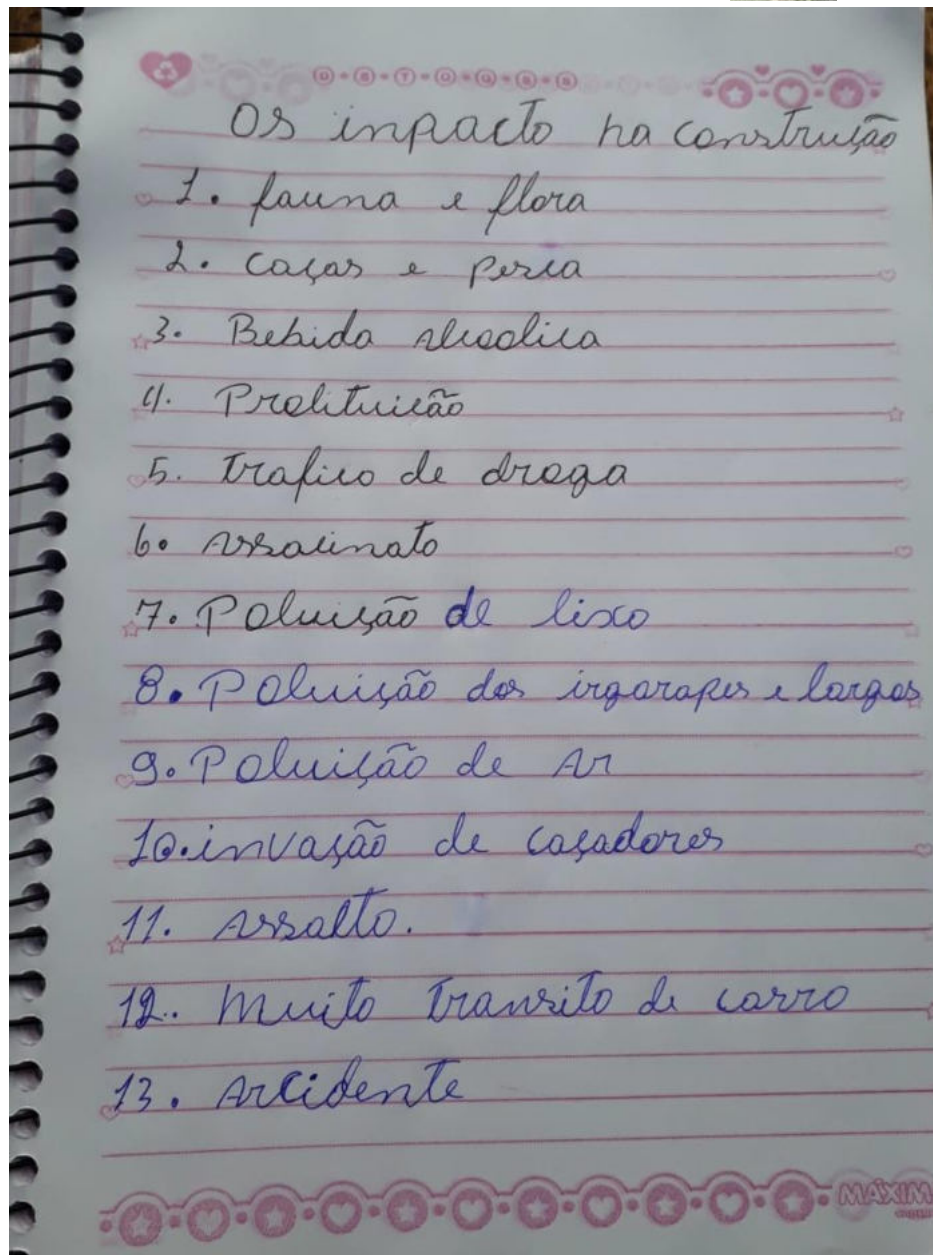 Os inpacto na construição
1. fauna e flora
2. caças e persca
3. Bebida alcoolica
4. Prolituicão
5. trafico de droga
6. Assacinato
7. Poluição de lixo
8. Poluição dos irgarapes e largos
9. Poluição de Ar
10. invasão de caçadores
11. Assalto.
12. Muito transito de carro
13. Arcidente
MÁXIM